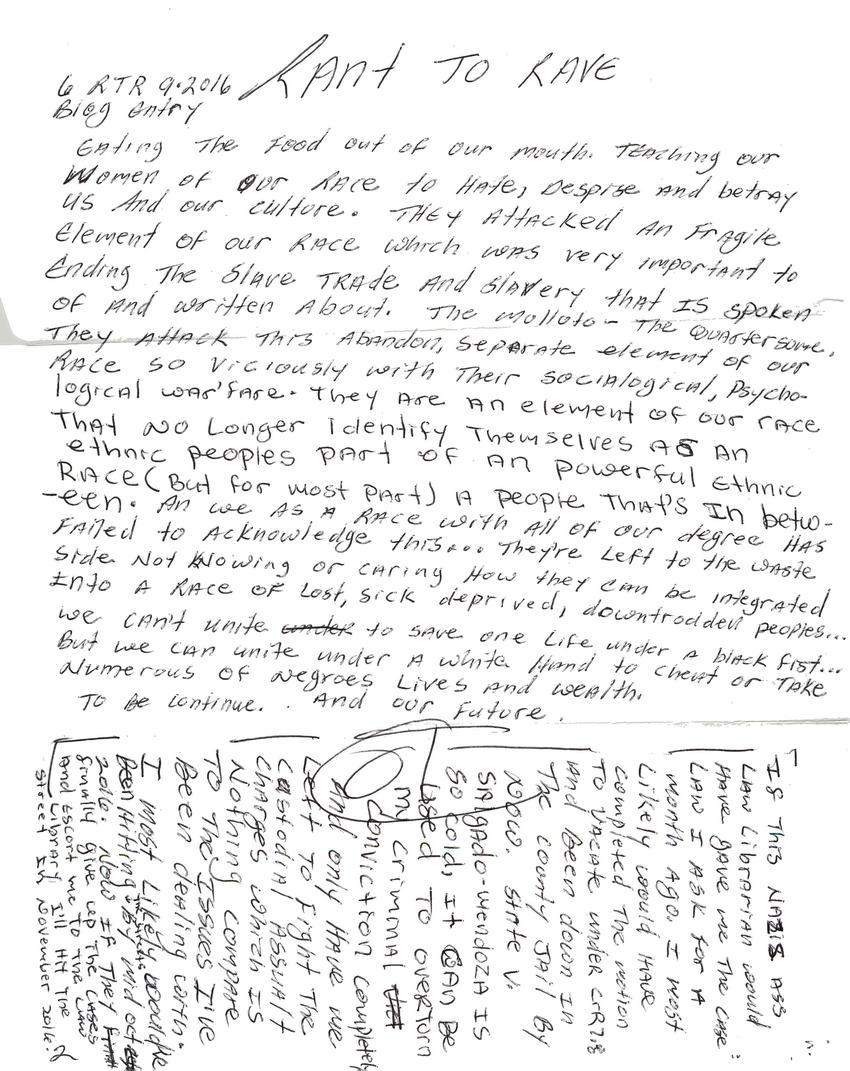 RANT TO RAVE
6 RTR 9.2016
Blog Entry
EAting The Food out of our mouth. TEAching our
Women of our RACE to HAte, Despise And betray
us And our culture. THEY AttACKED AN FrAgile
Element of our RACE which was very importAnt to
Ending The SlAve TRADE And SlAvery thAt IS spoken
of And written About. The mollato - The QuArtersome.
They AttAck This AbAndon, SepArAte element of our
RACE so viciously with Their sociAlogicAl, Psycho-
logical war'fare. They Are An element of our race
That no Longer identify Themselves AS An
ethnic peoples pArt of An powerful Ethnic
RACE (But for most pArt) A people ThAt's In betw-
-een. An we AS A RACE with All of our degree HAS
FAiled to Acknowledge this... They're Left to the wAste
side Not Knowing or cAring How they cAn be integrAted
Into A RAce of Lost, sick deprived, downtrodden peoples...
we cAn't unite under to sAve one Life under A blAck fist...
But we cAn unite under A white HAnd to cheAt or TAke
Numerous of Negroes Lives And weAlth.
To Be continue. . And our Future.
If This NAZIS ASS
LAW LibrAriAn would
HAve gAve me The CASE
LAW I ASK for A
month Ago. I most
Likely would HAve
completed The motion
To VACAte under CrR7.8
And Been down In
The county JAil By
NOW. StAte V.
SAlgAdo-Mendoza IS
so cold, It CAn be
used To overturn
my criminAl
conviction completely
And only HAve me
Left To Fight The
CustodiAl AssAult
chArges which IS
Nothing compAre
To The Issues I've
Been deAling with.
I most Likely would've
Been Hitting By mid oct
2016. Now If They
finAlly give up The CASES
And Escort me to The LAW
LibrAry I'll Hit The
Street In November 2016.